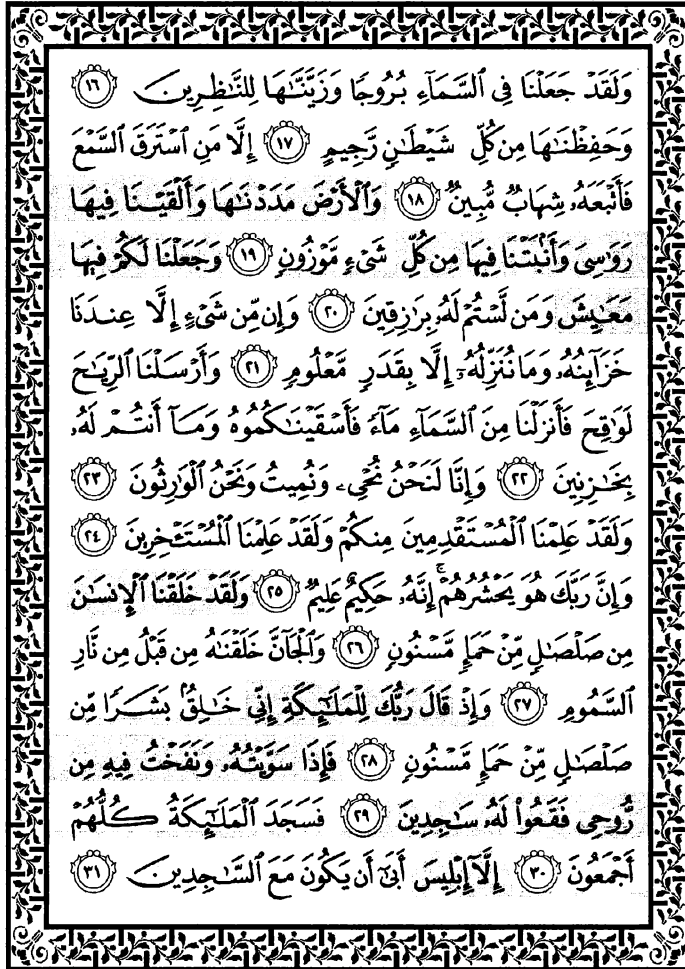 وَلَقَدْ جَعَلْنَا فِى ٱلسَّمَآءِ بُرُوجًا وَزَيَّنَّـٰهَا لِلنَّـٰظِرِينَ ١٦
وَحَفِظْنَـٰهَا مِن كُلِّ شَيْطَـٰنٍ رَّجِيمٍ ١٧ إِلَّا مَنِ ٱسْتَرَقَ ٱلسَّمْعَ
فَأَتْبَعَهُۥ شِهَابٌ مُّبِينٌ ١٨ وَٱلْأَرْضَ مَدَدْنَـٰهَا وَأَلْقَيْنَا فِيهَا
رَوَٰسِىَ وَأَنۢبَتْنَا فِيهَا مِن كُلِّ شَىْءٍ مَّوْزُونٍ ١٩ وَجَعَلْنَا لَكُمْ فِيهَا
مَعَـٰيِشَ وَمَن لَّسْتُمْ لَهُۥ بِرَٰزِقِينَ ٢٠ وَإِن مِّن شَىْءٍ إِلَّا عِندَنَا
خَزَآئِنُهُۥ وَمَا نُنَزِّلُهُۥٓ إِلَّا بِقَدَرٍ مَّعْلُومٍ ٢١ وَأَرْسَلْنَا ٱلرِّيَـٰحَ
لَوَٰقِحَ فَأَنزَلْنَا مِنَ ٱلسَّمَآءِ مَآءً فَأَسْقَيْنَـٰكُمُوهُ وَمَآ أَنتُمْ لَهُۥ
بِخَـٰزِنِينَ ٢٢ وَإِنَّا لَنَحْنُ نُحْىِۦ وَنُمِيتُ وَنَحْنُ ٱلْوَٰرِثُونَ ٢٣
وَلَقَدْ عَلِمْنَا ٱلْمُسْتَقْدِمِينَ مِنكُمْ وَلَقَدْ عَلِمْنَا ٱلْمُسْتَـْٔخِرِينَ ٢٤
وَإِنَّ رَبَّكَ هُوَ يَحْشُرُهُمْ ۚ إِنَّهُۥ حَكِيمٌ عَلِيمٌ ٢٥ وَلَقَدْ خَلَقْنَا ٱلْإِنسَـٰنَ
مِن صَلْصَـٰلٍ مِّنْ حَمَإٍ مَّسْنُونٍ ٢٦ وَٱلْجَآنَّ خَلَقْنَـٰهُ مِن قَبْلُ مِن نَّارِ
ٱلسَّمُومِ ٢٧ وَإِذْ قَالَ رَبُّكَ لِلْمَلَـٰٓئِكَةِ إِنِّى خَـٰلِقٌۢ بَشَرًا مِّن
صَلْصَـٰلٍ مِّنْ حَمَإٍ مَّسْنُونٍ ٢٨ فَإِذَا سَوَّيْتُهُۥ وَنَفَخْتُ فِيهِ مِن
رُّوحِى فَقَعُوا۟ لَهُۥ سَـٰجِدِينَ ٢٩ فَسَجَدَ ٱلْمَلَـٰٓئِكَةُ كُلُّهُمْ
أَجْمَعُونَ ٣٠ إِلَّآ إِبْلِيسَ أَبَىٰٓ أَن يَكُونَ مَعَ ٱلسَّـٰجِدِينَ ٣١